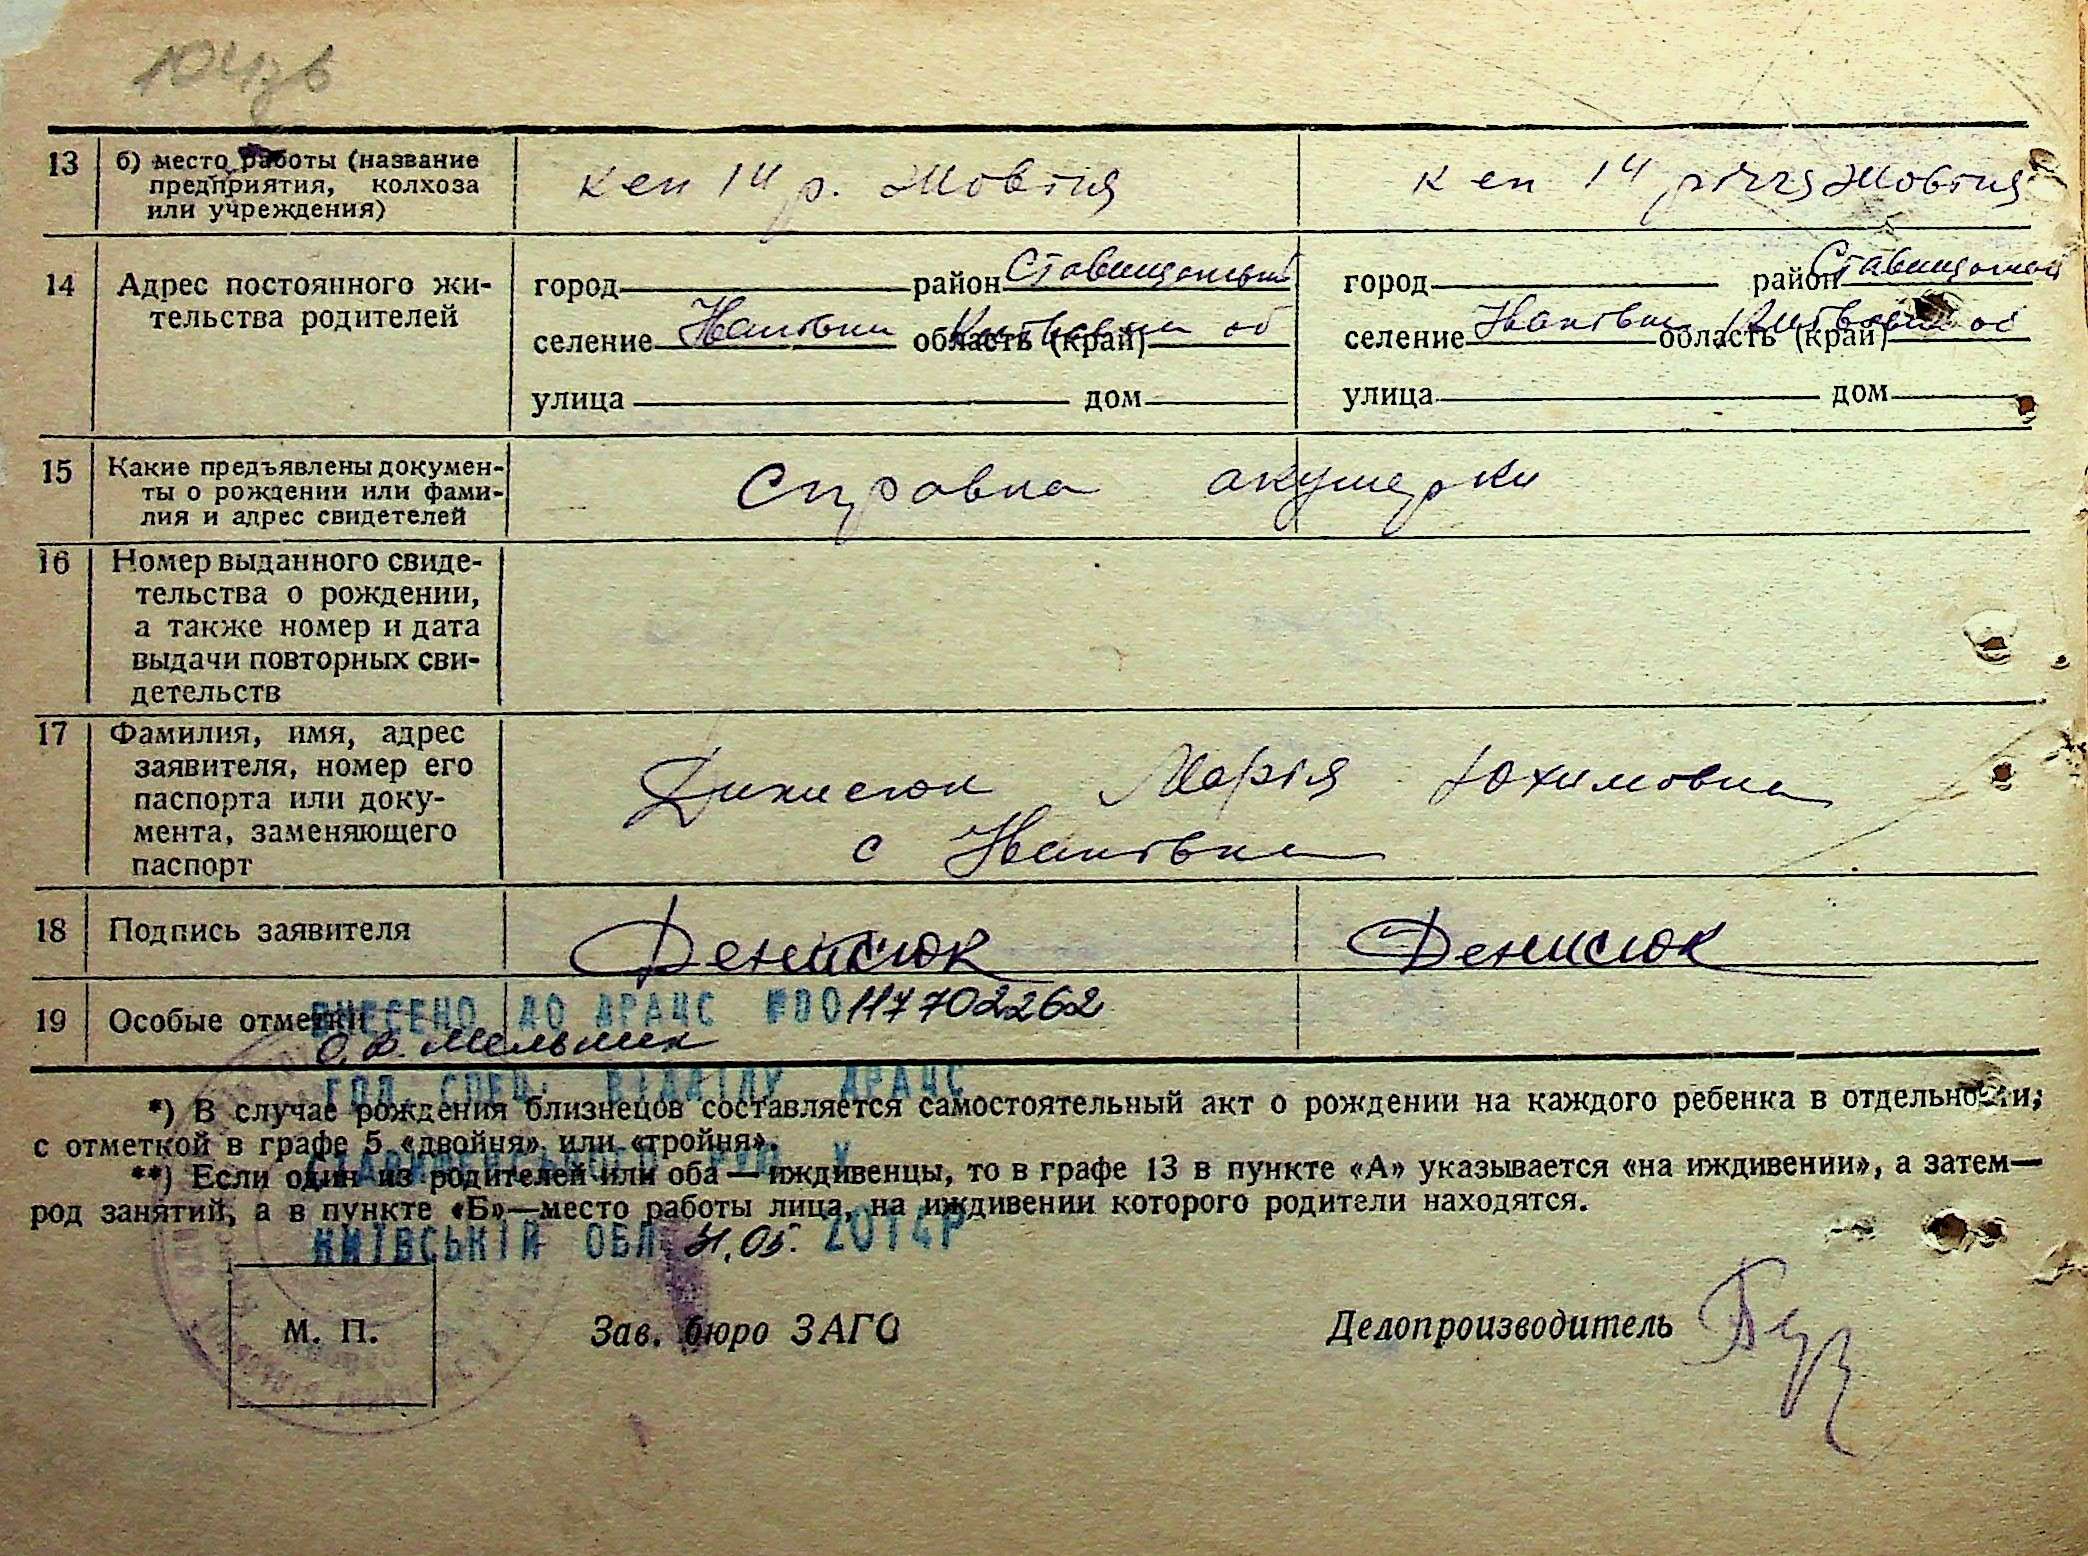 104зв
13 б) место работы (название
предприятия, колхоза
или учреждения)
кеп 14 р. Жовтня
кеп 14 річчя Жовтня
14 Адрес постоянного жи-
тельства родителей
город район Ставищанський
селение Іванівки область (край) Київська об
улица дом
город район
селение Іванівки область (край) Київська об
улица дом
15 Какие предъявлены докумен-
ты о рождении или фами-
лия и адрес свидетелей
Справка акушерки
16 Номер выданного свиде-
тельства о рождении,
а также номер и дата
выдачи повторных сви-
детельств
17 Фамилия, имя, адрес
заявителя, номер его
паспорта или доку-
мента, заменяющего
паспорт
Динисюк Марія Юхимовна
с Іванівка
18 Подпись заявителя
Денисюк Денисюк
19 Особые отметки
ВНЕСЕНО ДО ДРАЦС №00117702262
О.В. Мельник
ГОЛ. СПЕЦ. ВІДДІЛУ ДРАЦС
*) В случае рождения близнецов составляется самостоятельный акт о рождении на каждого ребенка в отдельности,
с отметкой в графе 5 «двойня» или «тройня».
**) Если один из родителей или оба — иждивенцы, то в графе 13 в пункте «А» указывается «на иждивении», а затем—
род занятий, а в пункте «Б»—место работы лица, на иждивении которого родители находятся.
КИЇВСЬКІЙ ОБЛ. 31.05. 2014Р
М. П.
Зав. бюро ЗАГС
Делопроизводитель